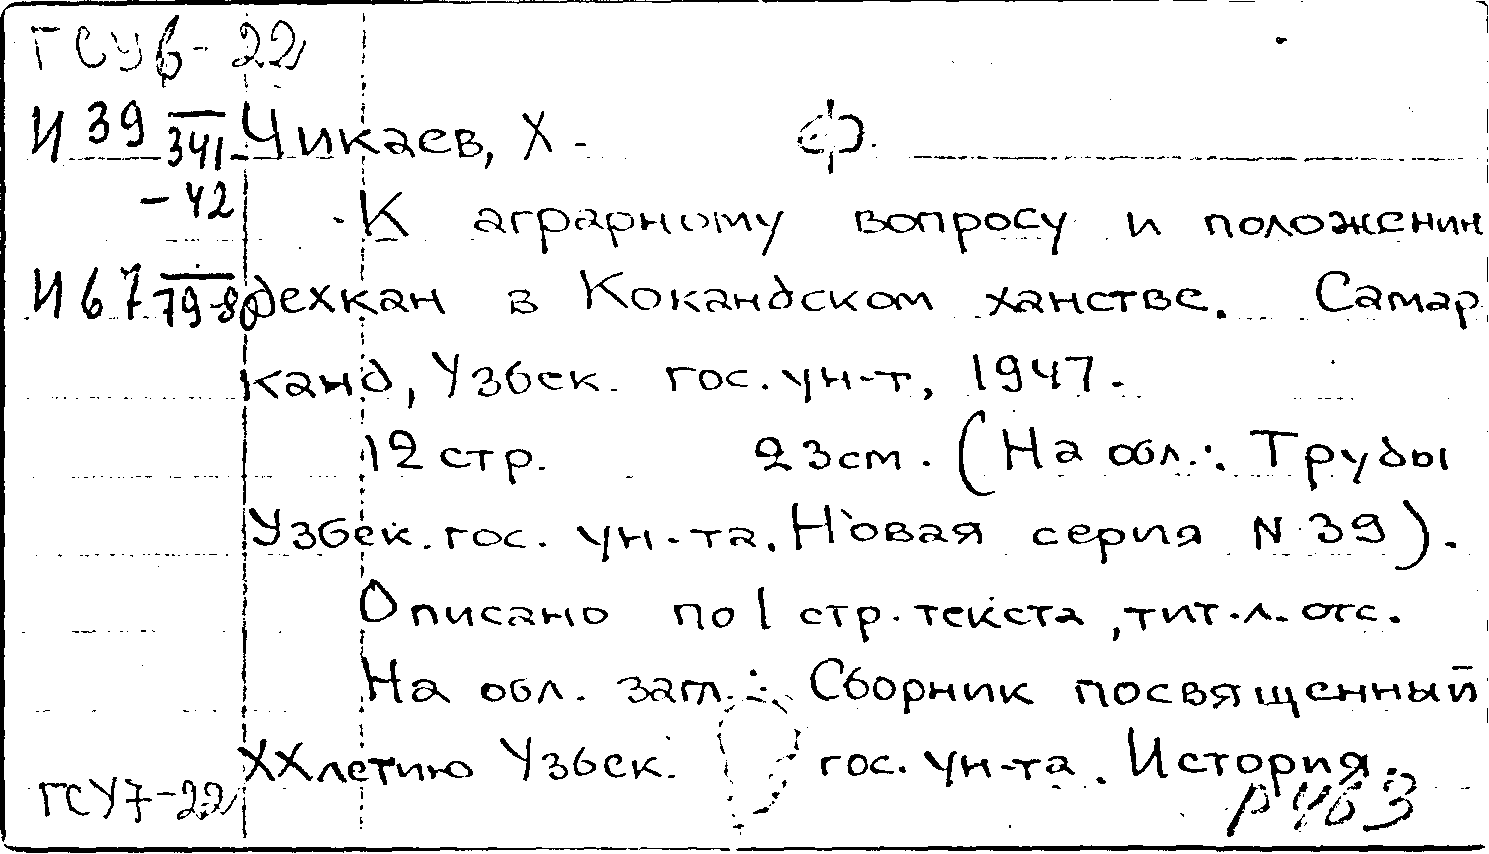 ГСУ6-22
И 39 341 Чикаев, Х. Ф.
-42 К аграрному вопросу и положении
И 67 79-8 дехкан в Кокандском ханстве. Самар
канд, Узбек. гос. ун-т, 1947.
12 стр. 23 см. (На обл.: Труды
Узбек. гос. ун-та. Новая серия N 39).
Описано по 1 стр. текста, тит. л. отс.
На обл. загл.: Сборник посвященный
ХХлетию Узбек. гос. ун-та. История.
ГСУ7-22 р463